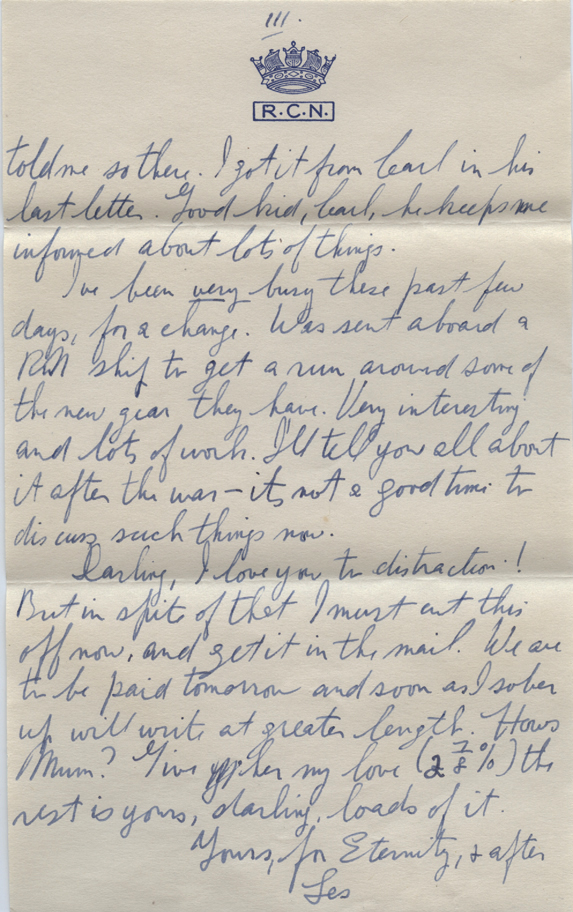 III.
R.C.N.
told me so there. I got it from Carl in his
last letter. Good kid, Carl, he keeps me
informed about lots of things.
I've been very busy these past few
days, for a change. Was sent aboard a
RN ship to get a run around some of
the new gear they have. Very interesting
and lots of work. I'll tell you all about
it after the war – its not a good time to
discuss such things now.
Darling, I love you to distraction!
But in spite of that I must cut this
off now, and get it in the mail. We are
to be paid tomorrow and soon as I sober
up will write at greater length. Hows
Mum? Give her my love (2 7/8 %) the
rest is yours, darling, loads of it.
Yours, for Eternity, & after
Les